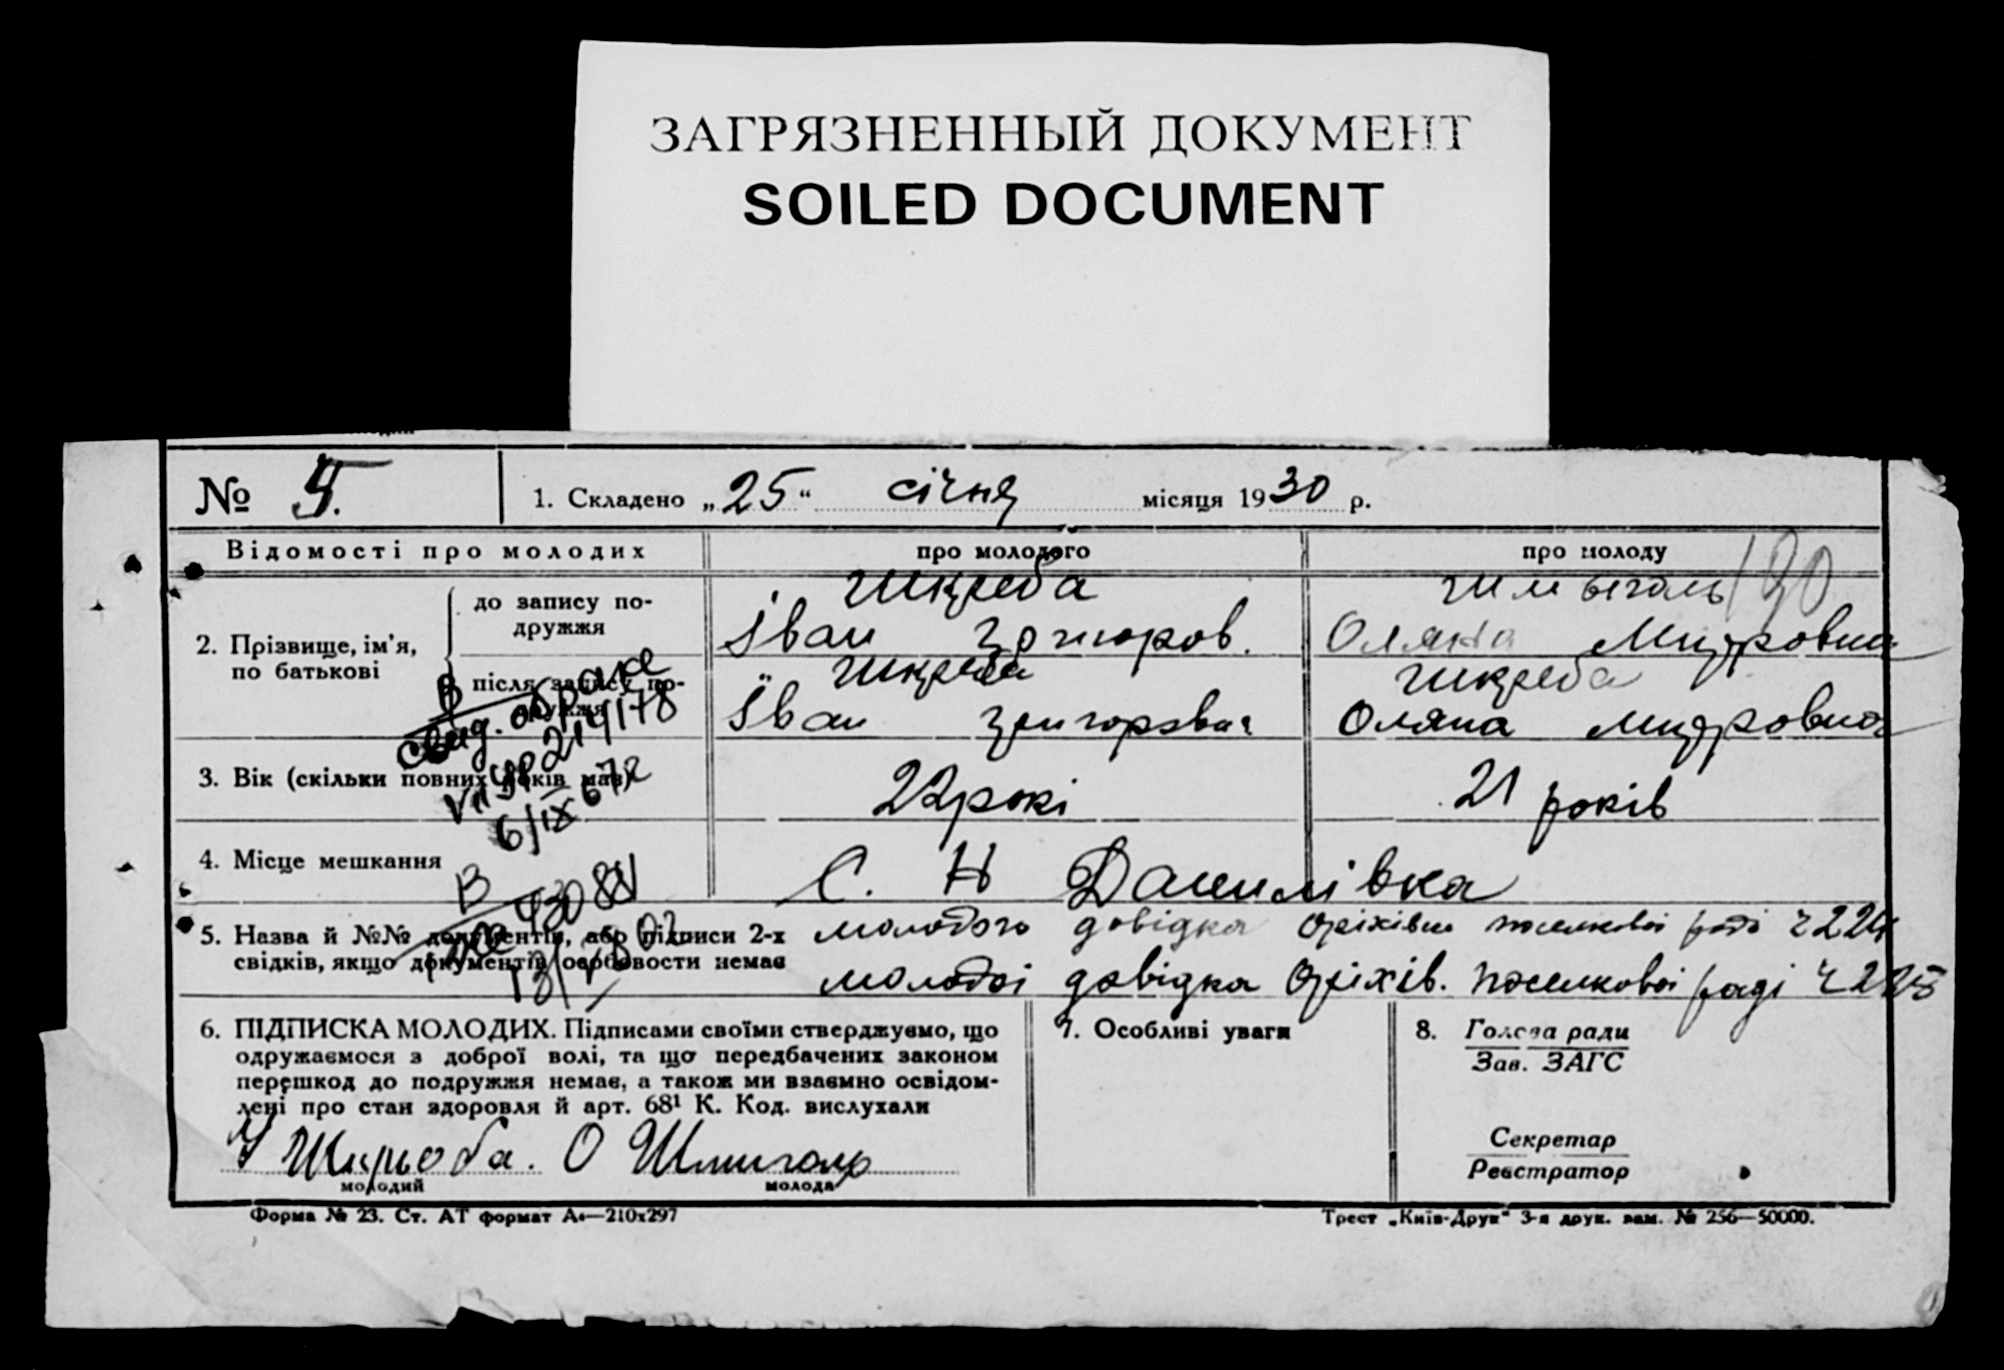 ЗАГРЯЗНЕННЫЙ ДОКУМЕНТ
SOILED DOCUMENT
№ 5.
1. Складено „25“ січня місяця 1930 р.
Відомості про молодих
про молодого
про молоду
2. Прізвище, ім'я, по батькові
до запису подружжя
Шкреба
Іван Григоров.
Оляна
після запису подружжя
Шкреба
Іван
Шкреба
Оляна
3. Вік (скільки повних років має)
22 рокі
21 років
4. Місце мешкання
С. Н Данилівка
5. Назва й №№ документів, або підписи 2-х
свідків, якщо документів особовости немає
молодого довідка Оріхівсь поселкової раді ч 224
молодої довідка Оріхів. поселкової раді ч 225
В
свид. о браке
В
6. ПІДПИСКА МОЛОДИХ. Підписами своїми стверджуємо, що
одружаємося з доброї волі, та що передбачених законом
перешкод до подружжя немає, а також ми взаємно освідом-
лені про стан здоровля й арт. 68¹ К. Код. вислухали
О Шмиголь
молодий
молода
7. Особливі уваги
8. Голова ради
Зав. ЗАГС
Секретар
Реєстратор
Форма № 23. Ст. АТ формат А4—210х297
Трест „Київ-Друк" 3-я друк. зам. № 256—50000.